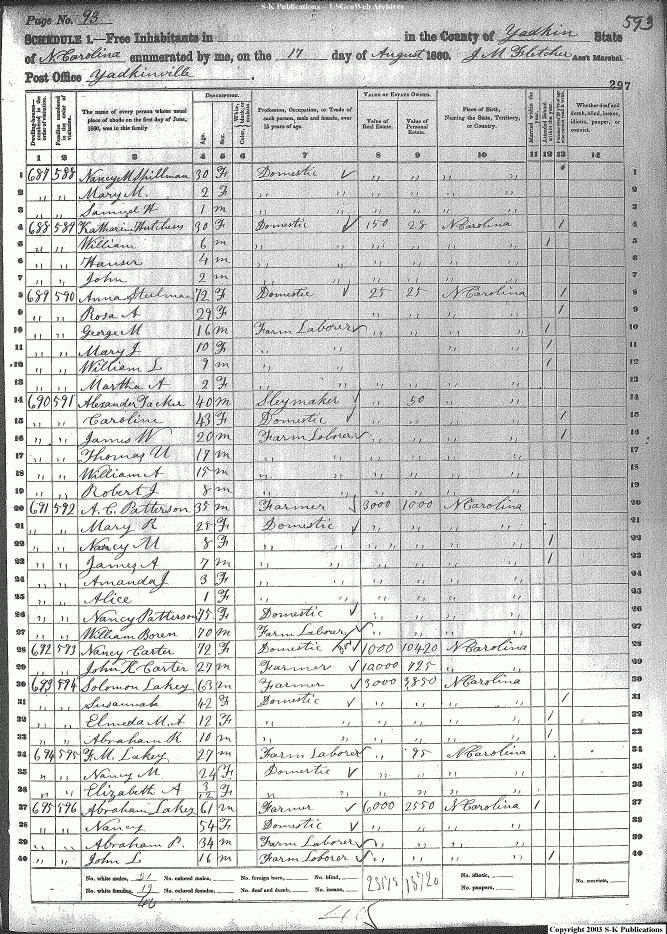 S-K Publications - USGenWeb Archives
Page No. 93
593
SCHEDULE 1.—Free Inhabitants in in the County of Yadkin State
of N Carolina enumerated by me, on the 17 day of August 1860. J. M. Fletcher Ass't Marshal
Post Office Yadkinville.
297
Dwelling-houses numbered in the order of visitation. Families numbered in the order of visitation. The name of every person whose usual place of abode on the first day of June, 1860, was in this family. DESCRIPTION. Age. Sex. Color, Profession, Occupation, or Trade of each person, male and female, over 15 years of age. VALUE OF ESTATE OWNED. Value of Real Estate. Value of Personal Estate. Place of Birth, Naming the State, Territory, or Country. Married within the year. Whether deaf and dumb, blind, insane, idiotic, pauper, or convict.
1 2 3 4 5 6 7 8 9 10 11 12 13 14
1 687 588 Nancy M Spillman 30 F Domestic " " " " 1
2 " " Mary M. 2 F " " " " " " 2
3 " " Samuel H 1 m " " " " " " 3
4 688 589 Katharin Hutchens 30 F Domestic 150 28 N Carolina / 4
5 " " William 6 m " " " " " " / 5
6 " " Hauser 4 m " " " " " " 6
7 " " John 2 m " " " " " " 7
8 689 590 Anna Steelman 72 F Domestic 25 25 N Carolina / 8
9 " " Rosa A 29 F " " " " " " / 9
10 " " George M 16 m Farm Laborer " " " " / 10
11 " " Mary J 10 F " " " " " " / 11
12 " " William L 9 m " " " " " " / 12
13 " " Martha A 2 F " " " " " " 13
14 690 591 Alexander 40 m Sleymaker 50 N Carolina 14
15 " " Caroline 43 F Domestic " " " " / 15
16 " " James W 20 m Farm Laborer " " " " / 16
17 " " Thomas 17 m " " " " " " 17
18 " " William A 15 m " " " " " " 18
19 " " Robert J 8 m " " " " " " 19
20 691 592 A. C. Patterson 35 m Farmer 3000 1000 N Carolina 20
21 " " Mary R 25 F Domestic " " " " 21
22 " " Nancy M 8 F " " " " " " / 22
23 " " James A 7 m " " " " " " / 23
24 " " Amanda J 3 F " " " " " " 24
25 " " Alice 1 F " " " " " " 25
26 " " Nancy Patterson 75 F Domestic " " " " 26
27 " " William Boren 70 m Farm Laborer " " " " 27
28 692 593 Nancy Carter 72 F Domestic 1000 10420 N Carolina 28
29 " " John R Carter 27 m Farmer 10000 925 " " 29
30 693 594 Solomon Lakey 63 m Farmer 3000 3850 N Carolina 30
31 " " Susannah 42 F Domestic " " " " / 31
32 " " Elmeda M. A 12 F " " " " " " / 32
33 " " Abraham R 10 m " " " " " " / 33
34 694 595 F. M. Lakey 27 m Farm Laborer " 95 N Carolina 34
35 " " Nancy M 24 F Domestic " " " " 35
36 " " Elizabeth A 3/12 F " " " " " " 36
37 695 596 Abraham Lakey 61 m Farmer 6000 2550 N Carolina 1 37
38 " " Nancy 54 F Domestic " " " " 38
39 " " Abraham P. 34 m Farm Laborer " " " " 39
40 " " John L 16 m Farm Laborer " " " " / 40
No. white males, 21 No. colored males, No. foreign born, No. blind, No. idiotic, No. convicts,
No. white females, 19 No. colored females, No. deaf and dumb, No. insane, No. paupers,
40
Copyright 2003 S-K Publications